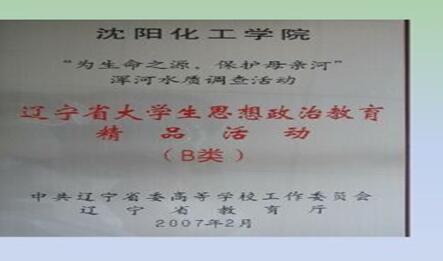 沈阳化工学院
“为生命之源，保护母亲河”
浑河水质调查活动
辽宁省大学生思想政治教育
精品活动
（B类）
中共辽宁省委高等学校工作委员会
辽宁省教育厅
2007年2月